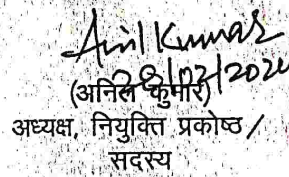 Anil Kumar
28/02/2024
(अनिल कुमार)
अध्यक्ष, नियुक्ति प्रकोष्ठ /
सदस्य